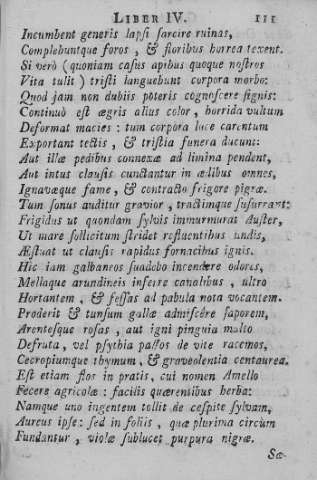 LIBER IV. 111
Incumbent generis lapsi sarcire ruinas,
Complebuntque foros, & floribus horrea texent.
Si verò (quoniam casus apibus quoque nostros
Vita tulit) tristi languebunt corpora morbo:
Quod jam non dubiis poteris cognoscere signis:
Continuò est ægris alius color, horrida vultum
Deformat macies: tum corpora luce carentum
Exportant tectis, & tristia funera ducunt:
Aut illæ pedibus connexæ ad limina pendent,
Aut intus clausis cunctantur in ædibus omnes,
Ignavæque fame, & contracto frigore pigræ.
Tum sonus auditur gravior, tractimque susurrant:
Frigidus ut quondam sylvis immurmurat Auster,
Ut mare sollicitum stridet refluentibus undis,
Æstuat ut clausis rapidus fornacibus ignis.
Hic jam galbaneos suadebo incendere odores,
Mellaque arundineis inferre canalibus, ultro
Hortantem, & fessas ad pabula nota vocantem.
Proderit & tunsum gallæ admiscere saporem,
Arentesque rosas, aut igni pinguia multo
Defruta, vel psythia passos de vite racemos,
Cecropiumque thymum, & graveolentia centaurea.
Est etiam flos in pratis, cui nomen Amello
Fecere agricolæ: facilis quærentibus herba:
Namque uno ingentem tollit de cespite sylvam,
Aureus ipse: sed in foliis, quæ plurima circum
Fundantur, violæ sublucet purpura nigræ.
Sæ-